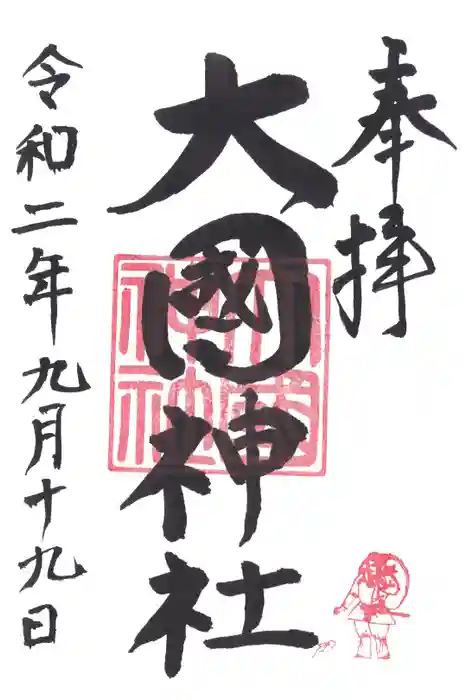 奉拝
大國神社
令和二年九月十九日